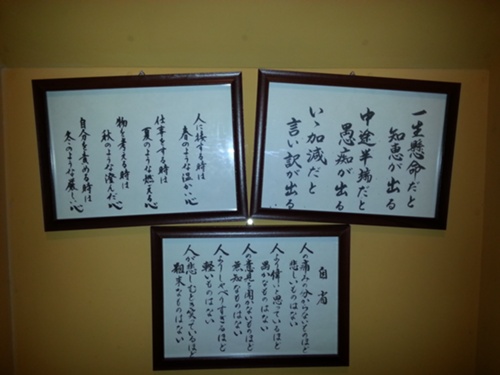 人に接する時は
春のような温かい心
仕事をする時は
夏のような燃える心
物を考える時は
秋のような澄んだ心
自分を責める時は
冬のような厳しい心
一生懸命だと
知恵が出る
中途半端だと
愚痴が出る
いゝ加減だと
言い訳が出る
自省
人の痛みの分からないものほど
悲しいものはない
人より偉いと思っているほど
愚かなものはない
人の意見を聞かないものほど
無知なものはない
人よりしゃべりすぎるほど
軽いものはない
人が悲しむとき笑っているほど
粗末なものはない